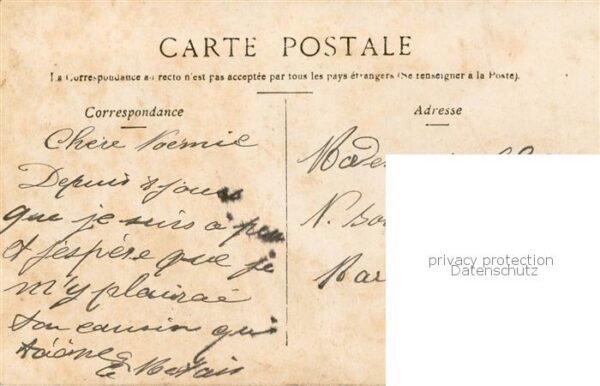 CARTE POSTALE
La Correspondance au recto n'est pas acceptée par tous les pays étrangers (Se renseigner à la Poste).
Correspondance
Chère Noémie
Depuis 8 jours
que je suis à
& j'espère que je
m'y plairai
ton cousin qui
Adresse
N.
privacy protection
Datenschutz